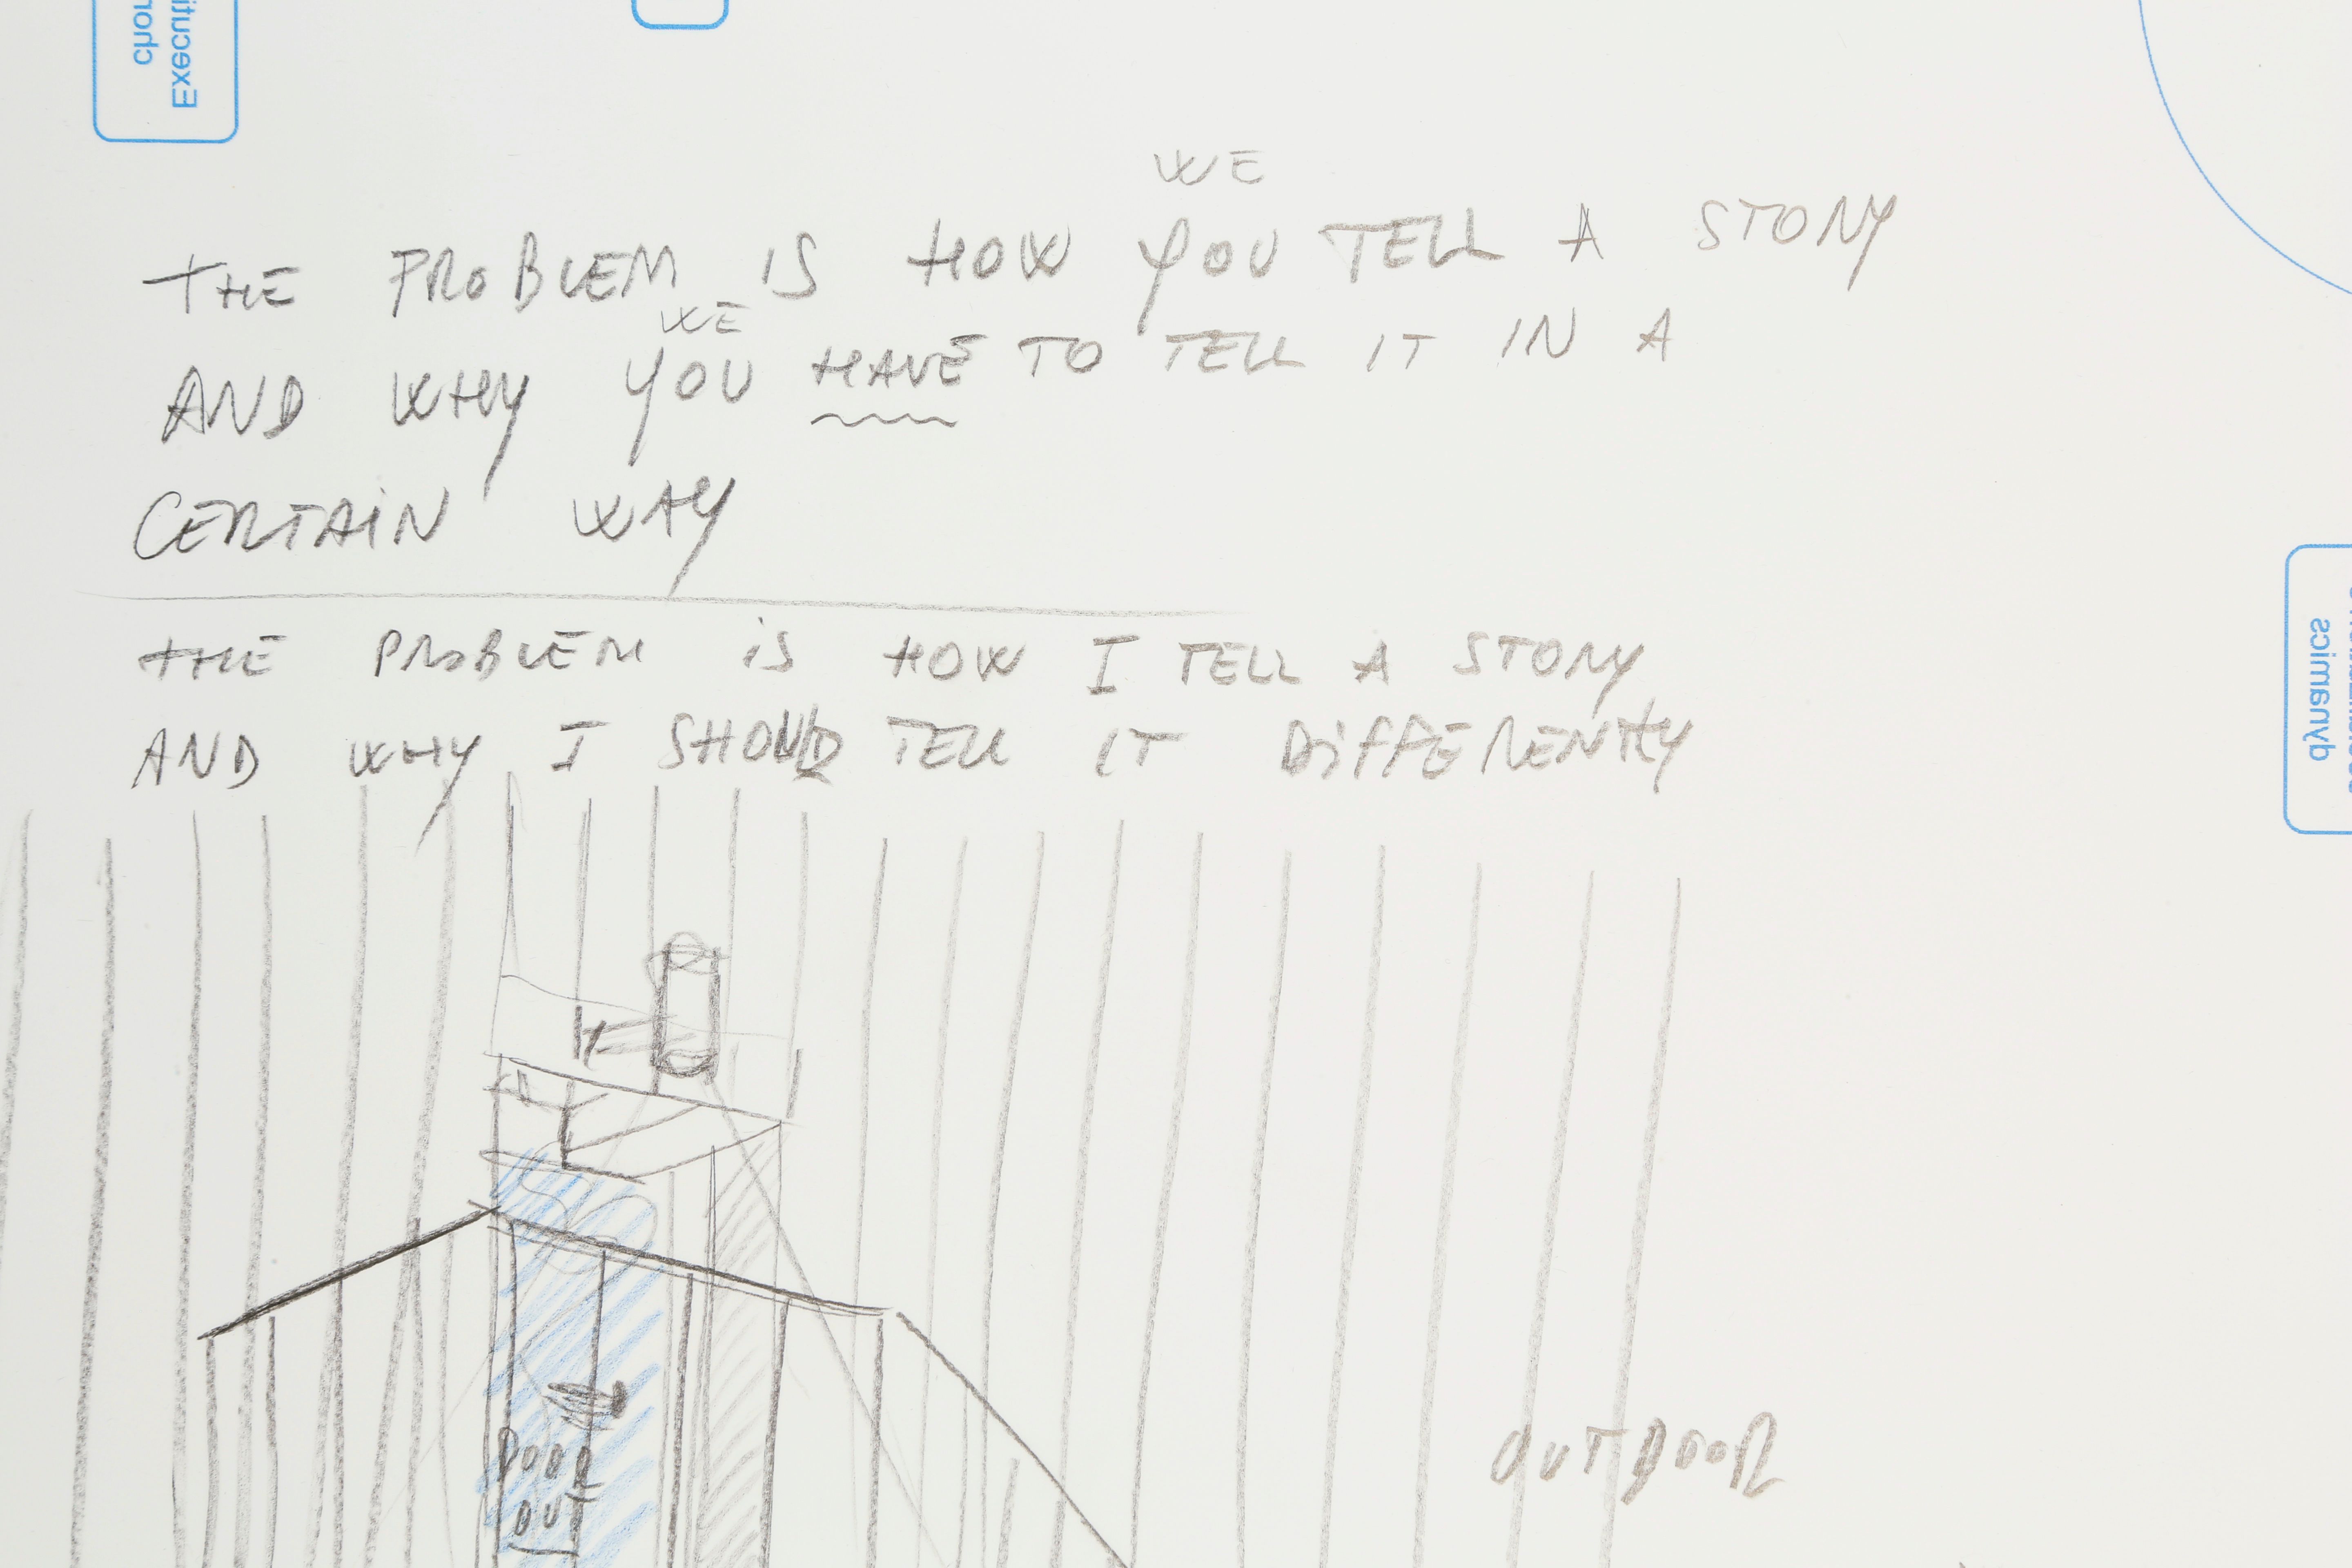 Executi
chor
WE
THE PROBLEM IS HOW YOU TELL A STORY
WE
AND WHY YOU HAVE TO TELL IT IN A
CERTAIN WAY
THE PROBLEM iS HOW I TELL A STORY
AND WHY I SHOULD TELL IT DiffERENTLY
dynamics
DOOR
OUT
OUTDOOR